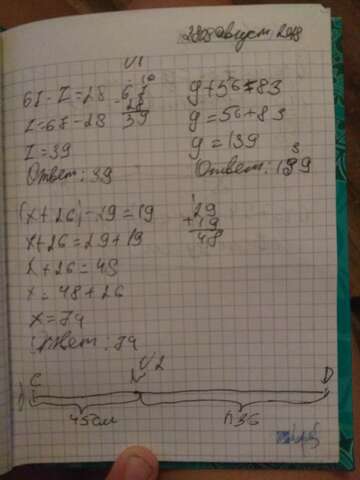 август
V1
67 - Z = 28
Z = 67 - 28
Z = 39
Ответ: 39
10
67
28
39
y + 56 = 83
y = 56 + 83
y = 139
Ответ: 139
(x + 26) - 29 = 19
x + 26 = 29 + 19
x + 26 = 48
x = 48 + 26
x = 74
Ответ: 74
29
+ 19
48
V2
C
D
45см